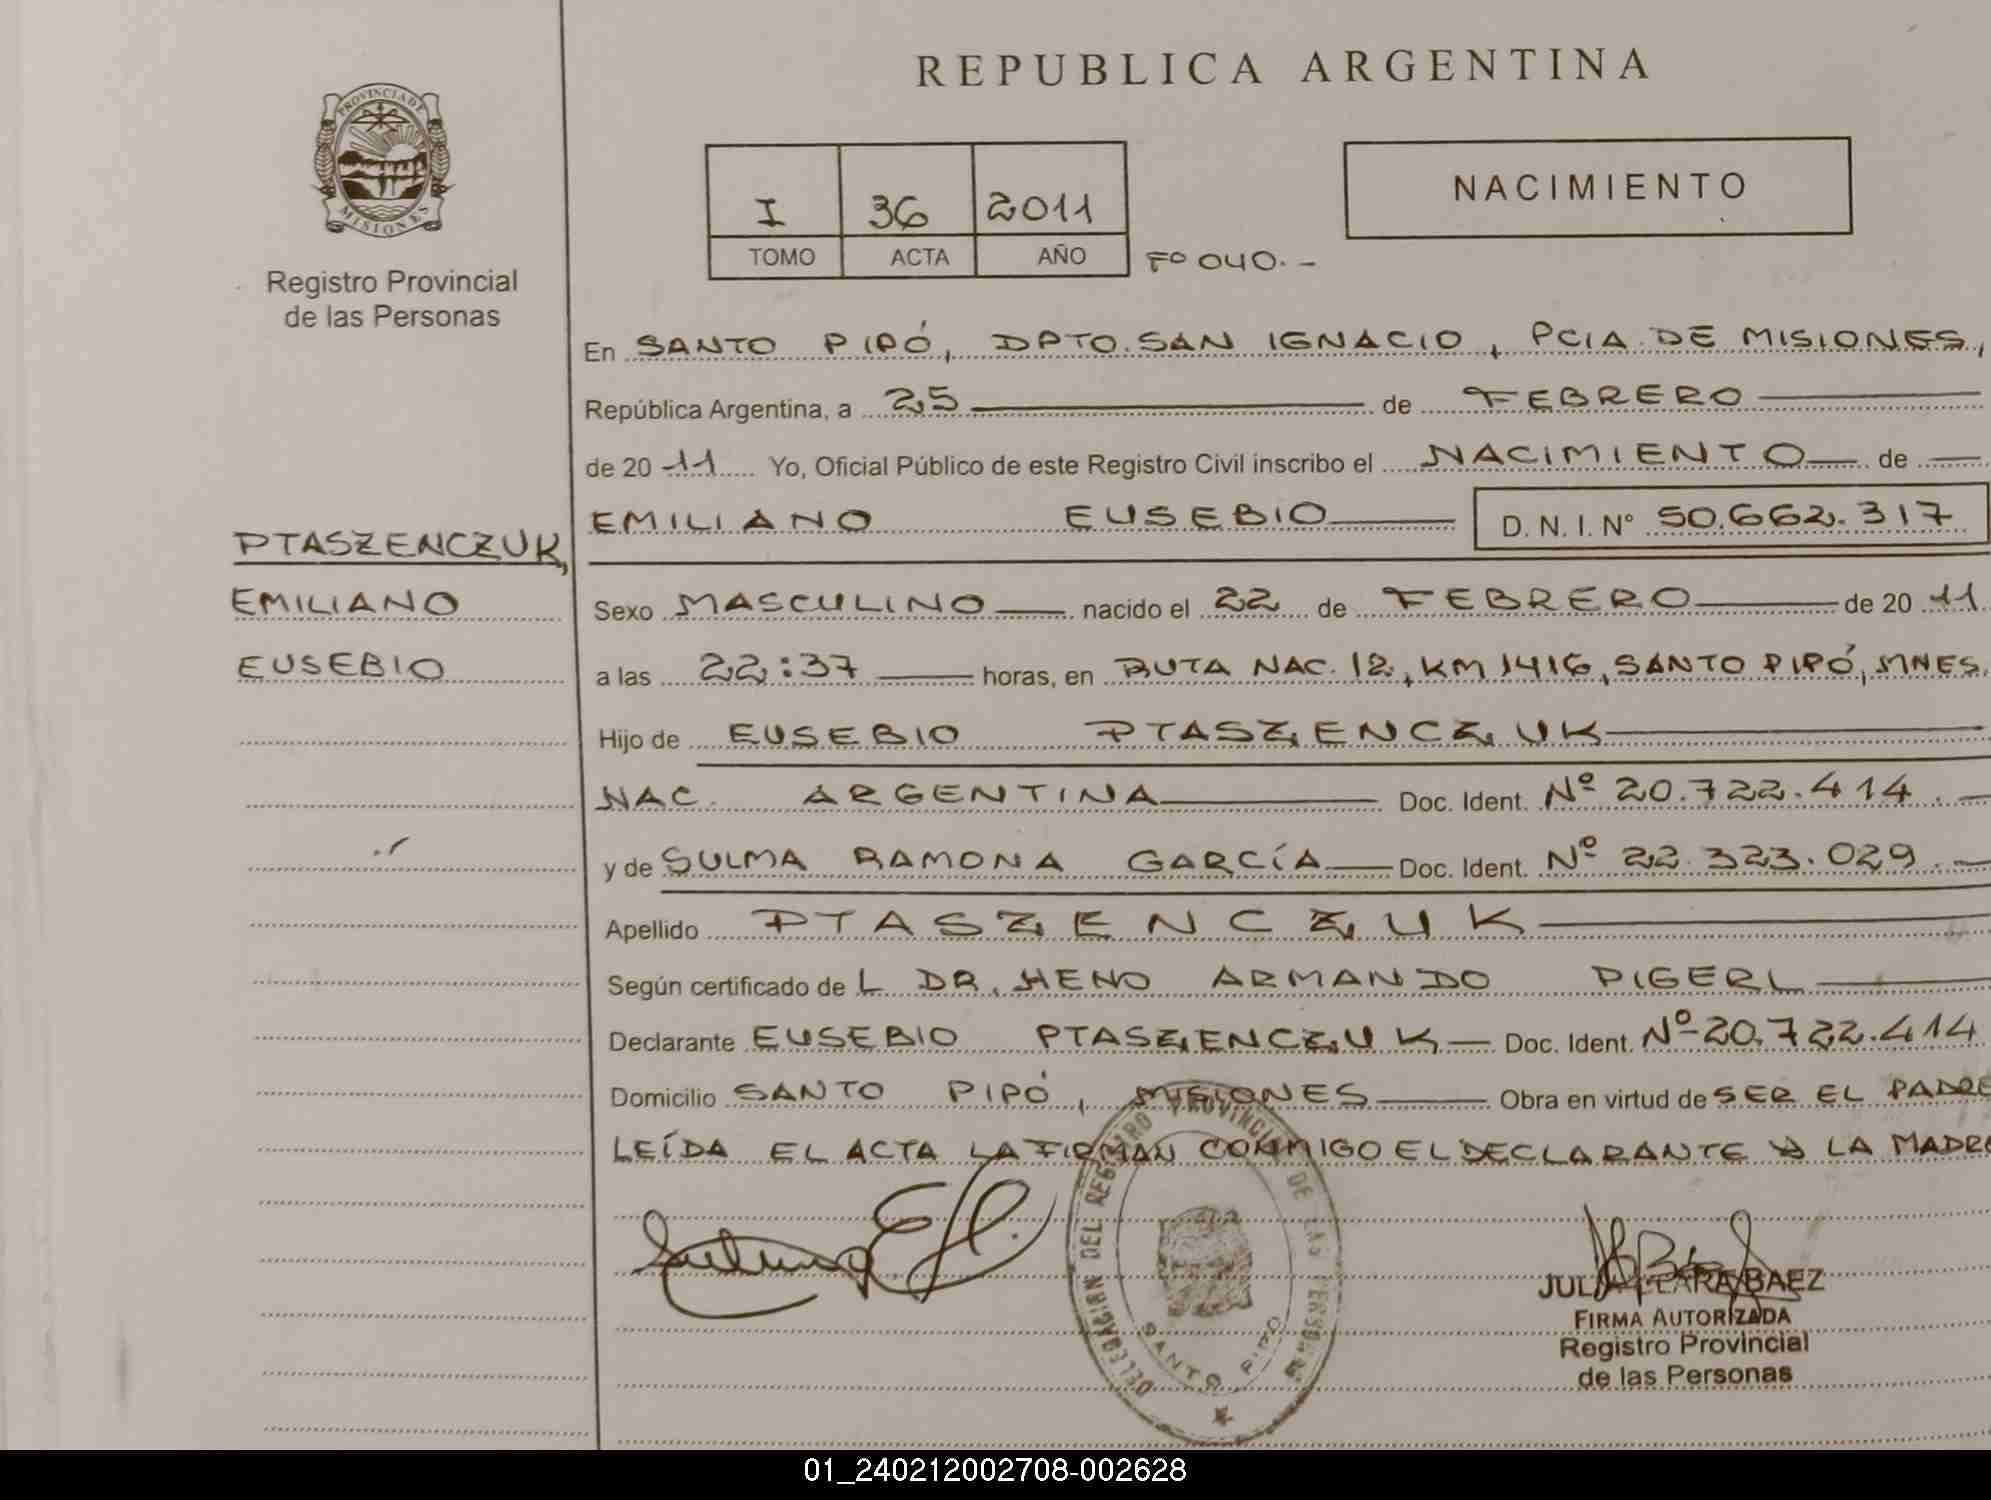 REPUBLICA ARGENTINA
PROVINCIA DE
MISIONES
Registro Provincial
de las Personas
I 36 2011
TOMO ACTA AÑO
Fº 040.-
NACIMIENTO
En SANTO PIPÓ, DPTO. SAN IGNACIO, PCIA. DE MISIONES,
República Argentina, a 25 de FEBRERO
de 20 11 Yo, Oficial Público de este Registro Civil inscribo el NACIMIENTO de
EMILIANO EUSEBIO D. N. I. Nº 50.662.317
PTASZENCZUK,
EMILIANO
EUSEBIO
Sexo MASCULINO nacido el 22 de FEBRERO de 20 11
a las 22:37 horas, en RUTA NAC. 12, KM 1416, SANTO PIPÓ, MNES.
Hijo de EUSEBIO PTASZENCZUK
NAC. ARGENTINA Doc. Ident. Nº 20.722.414.
y de SULMA RAMONA GARCÍA Doc. Ident. Nº 22.323.029.
Apellido PTASZENCZUK
Según certificado de L DR. HENO ARMANDO PIGERL
Declarante EUSEBIO PTASZENCZUK Doc. Ident. Nº 20.722.414
Domicilio SANTO PIPÓ, MISIONES Obra en virtud de SER EL PADRE
LEÍDA EL ACTA LA FIRMAN CONMIGO EL DECLARANTE Y LA MADRE
DELEGACION DEL REGISTRO PROVINCIAL DE LAS PERSONAS
SANTO PIPO
JULIA CLARA BAEZ
FIRMA AUTORIZADA
Registro Provincial
de las Personas
01_240212002708-002628